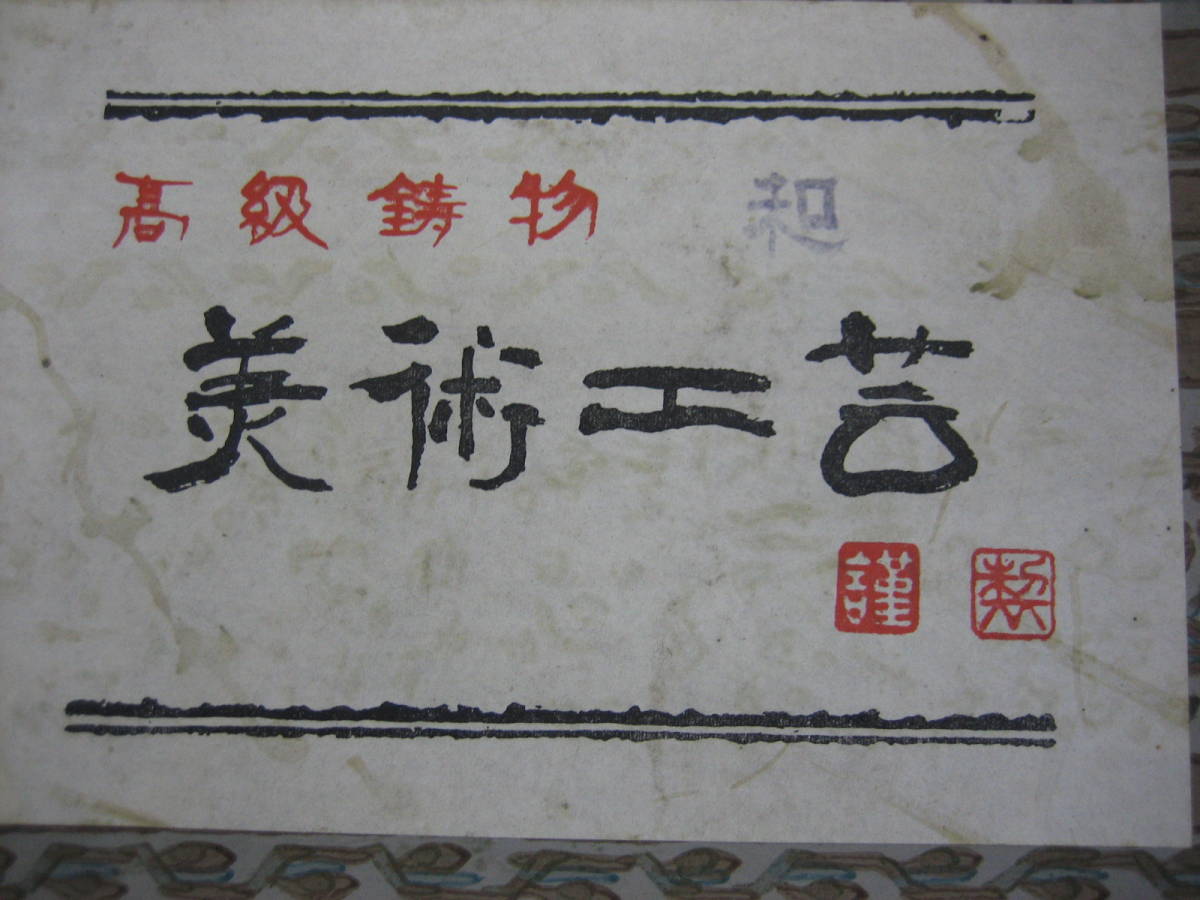 高級鋳物 和
美術工芸
謹製